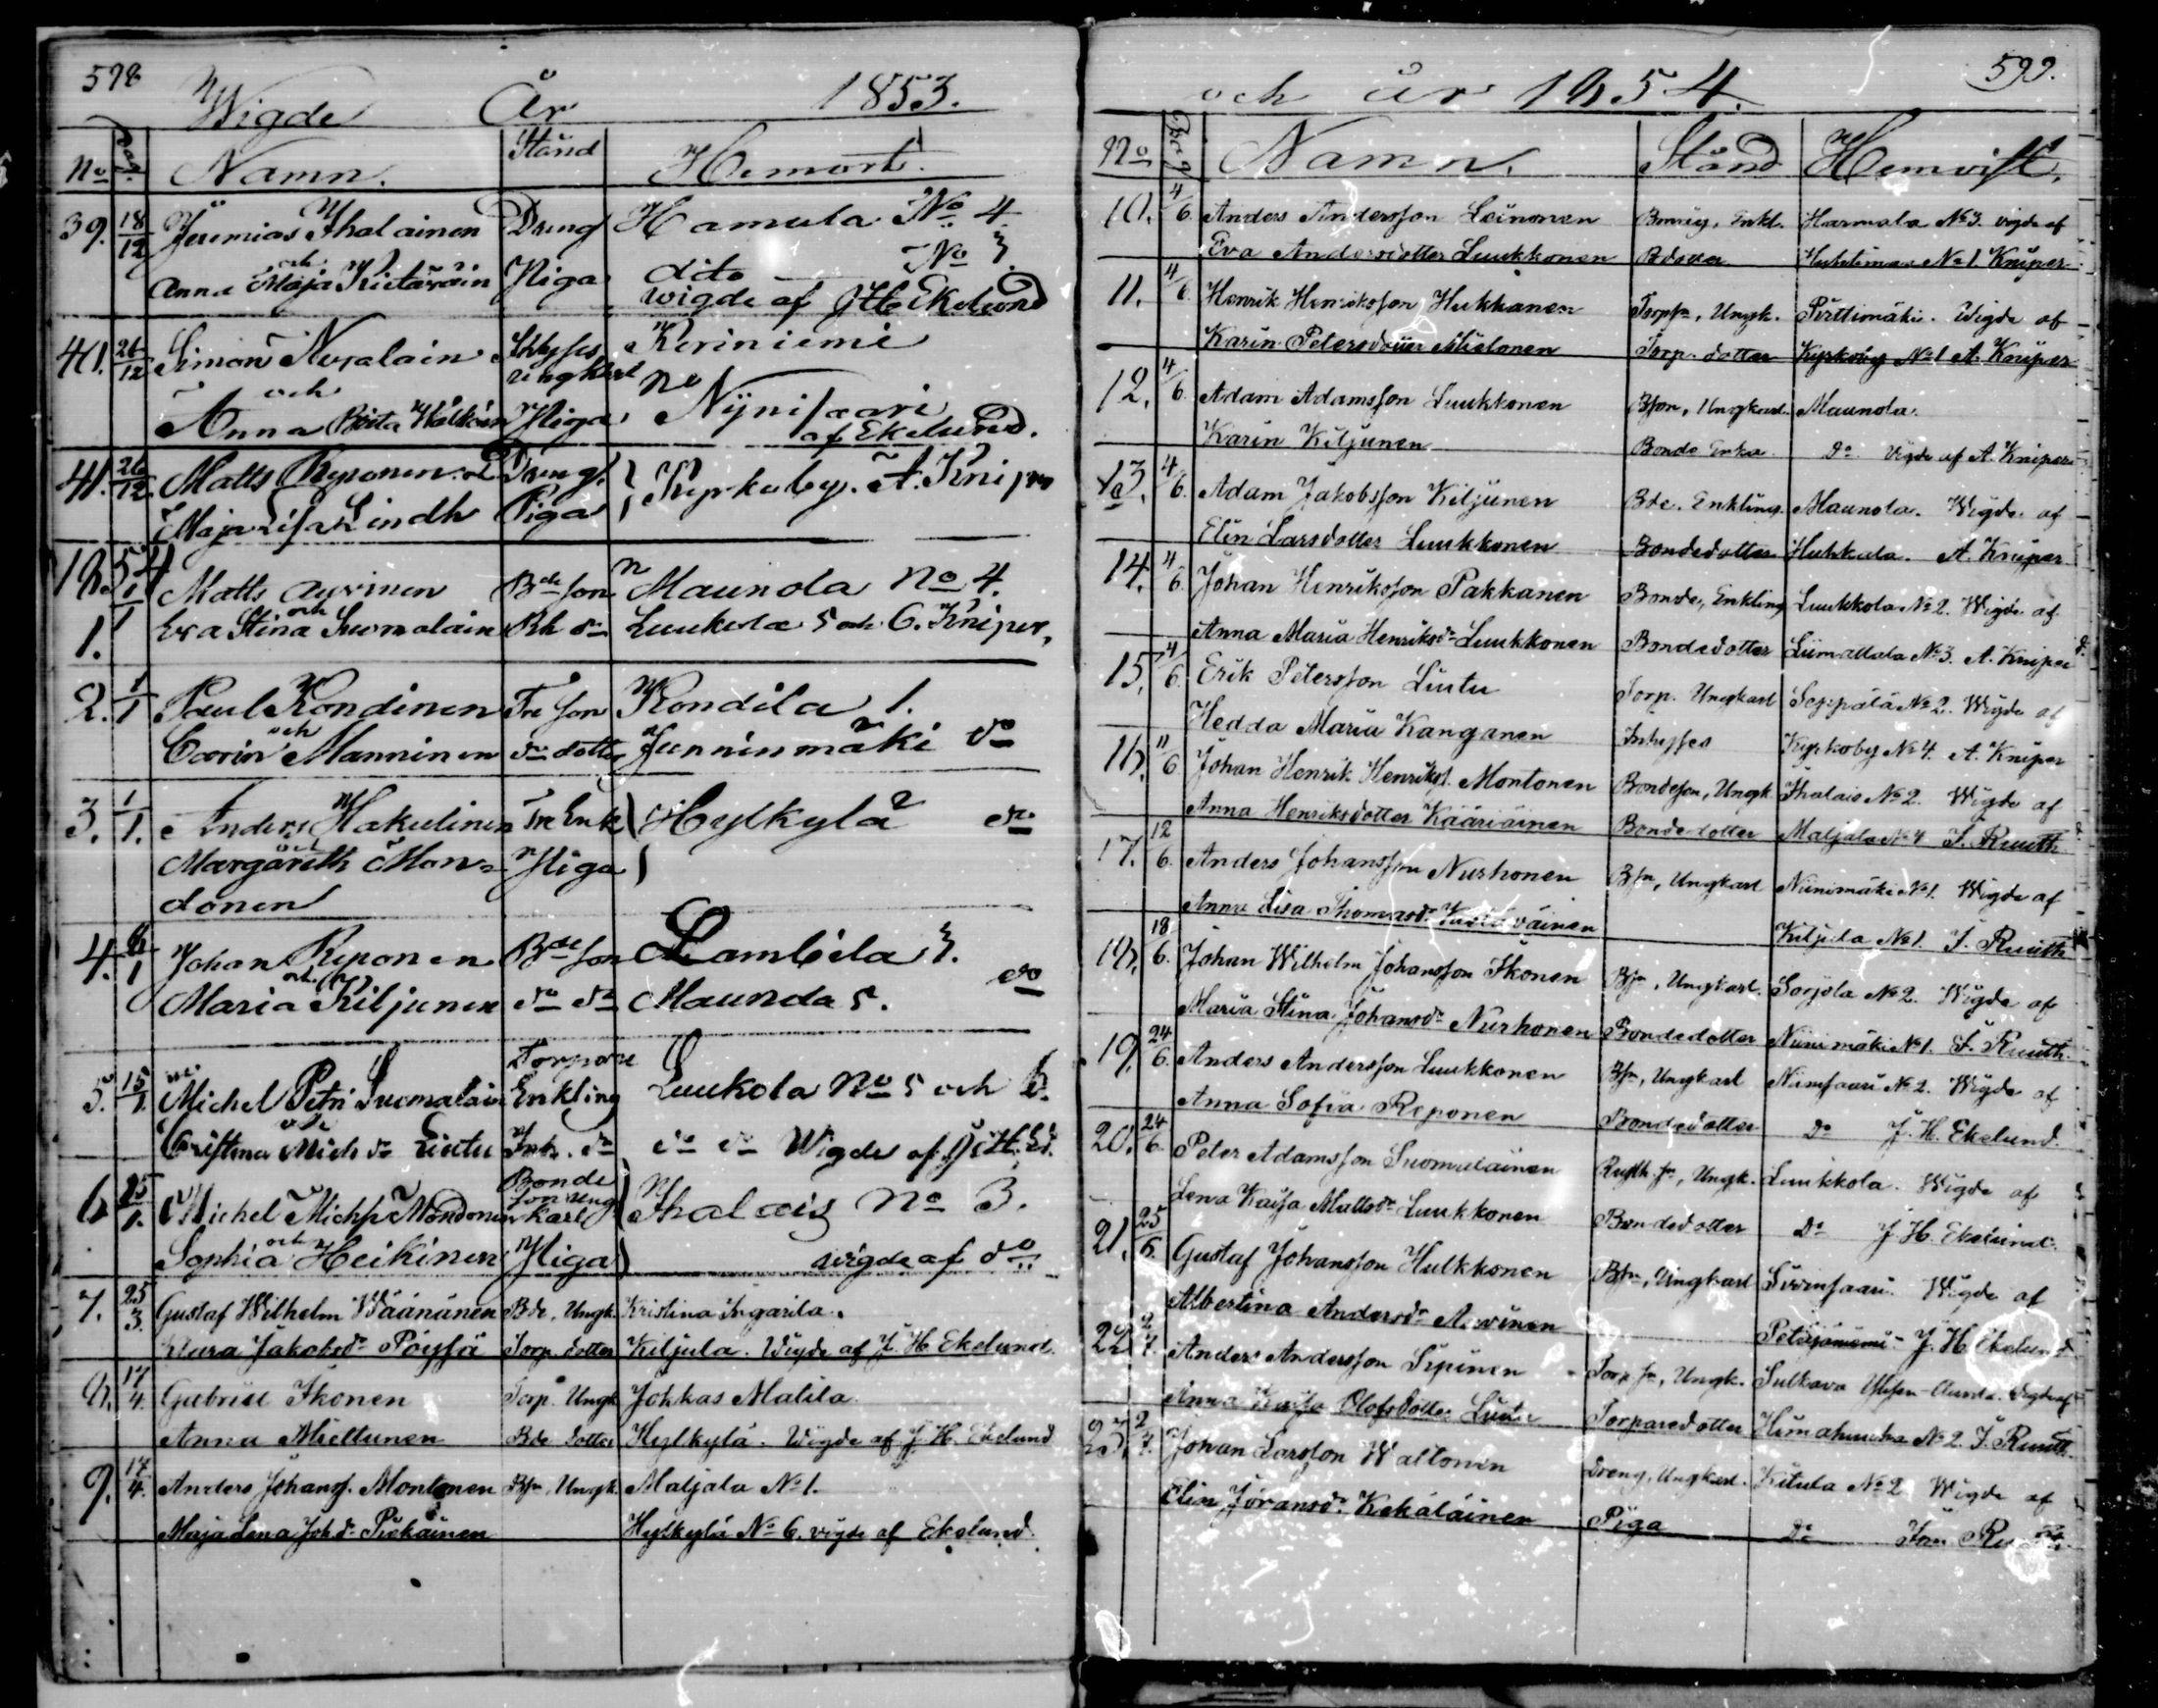 578
Wigde År 1853.
No Dag. Namn. Stånd Hemort.
39. 18/12 Jeremias Ihalainen Dreng Hamula No 4
och
Anna Maja Kietäväin Piga dito No 3
wigde af JH Ekelund
40. 26/12 Simon Nusalain Inhyses ungkarl Kiriniemi
och
Anna Brita Hälkäin Piga Nijnisaari
af Ekelund.
41. 26/12. Matts Reponen Dreng. Kyrkoby. A. Kniper
Maja Lisa Lindh Piga
1854
1. 1/1 Matts Auvinen Bde son Maunola No 4.
och
Eva Stina Suomalain Rh dr Luukola 5 och 6. Kniper.
2. 1/1 Paul Kondinen Tre son Kondila 1.
och
Carin Manninen dr dotter Junninmäki do
3. 1/1. Anders Hakulinen Tre Enk Hylkylä do
och
Margareth Mon= Piga
donen
4. 6/1 Johan Reponen Bde son Lambila 3.
och
Maria Kiljunen do do Maunola 5. do
5. 15/1. Michel Petri Suomalain Torpare Enkling Luukola No 5 och 6.
och
Cristina Mich dr Liutu Inh. dr do do Wigde af JH. Ed.
6 25/1. Michel Michss Mondonen Bonde son ungkarl Ihalais No 3.
och
Sophia Heikinen Piga wigde af do
7. 25/3. Gustaf Wilhelm Wäänänen Bde, Ungk. Kristina Ingarila.
Klara Jakobsdr Pöyhä Torp. dotter Kiljula. Wigde af J. H Ekelund.
8. 17/4. Gabriel Ikonen Torp. Ungk Johkas Matila.
Anna Miettunen Bde dotter Hylkylä. Wigde af J. H. Ekelund
9. 17/4. Anders Johanss. Montonen Bsn, Ungk. Matjala No 1.
Maja Lena Joh dr Piskainen Hylkylä No 6. vigde af Ekelund.
599.
och år 1854.
No Dag Namn. Stånd Hemvist.
10. 4/6. Anders Andersson Leinonen Enkl. Harmala No 3. vigde af
Eva Andersdotter Luukkonen Bdotter No 1 Kniper
11. 4/6. Henrik Henriksson Hukkanen Torpsn, Ungk. Pirttimäki. Wigde af
Karin Petersdotter Mielonen Torp. dotter Kyrkoby No 1 A. Kniper
12. 4/6. Adam Adamsson Luukkonen Bson, Ungkarl. Maunola.
Karin Kiljunen Bonde Enka Do Vigde af A. Kniper
13. 4/6. Adam Jakobsson Kiljunen Bde. Enkling. Maunola. Wigde af
Elin Larsdotter Luukkonen Bondedotter Huhkala. A. Kniper
14. 4/6. Johan Henriksson Pakkanen Bonde, Enkling Luukkola No 2. Wigde af
Anna Maria Henriksdr Luukkonen Bondedotter Liimattala No 3. A. Kniper
15. 4/6. Erik Petersson Liutu Torp. Ungkarl Seppälä No 2. Wigde af
Hedda Maria Kanganen Inhyses Kyrkoby No 4. A. Kniper
16. 11/6. Johan Henrik Henrikss. Montonen Bondeson, Ungk Ihalais No 2. Wigde af
Anna Henriksdotter Kääriäinen Bondedotter Matjala No 4 I. Ruuth
17. 12/6. Anders Johansson Nurhonen Bsn, Ungkarl Niinimäki No 1. Wigde af
Anna Lisa Thomasdr Kietäväinen Kiljula No 1. I. Ruuth
18. 18/6. Johan Wilhelm Johansson Ikonen Bsn, Ungkarl. Sorjola No 2. Wigde af
Maria Stina Johansdr Nurhonen Bondedotter Niinimäki No 1. I. Ruuth.
19. 24/6. Anders Andersson Luukkonen Bsn, Ungkarl Niinisaari No 2. Wigde af
Anna Sofia Reponen Bondedotter Do J. H. Ekelund.
20. 24/6. Peter Adamsson Suomalainen Rusth. sn, Ungk. Luukkola. Wigde af
Lena Kaisa Mattsdr Luukkonen Bondedotter Do J. H. Ekelund.
21. 25/6. Gustaf Johansson Hulkkonen Bsn, Ungkarl Sivinsaari. Wigde af
Albertina Andersdr Auvinen Petäjäniemi. J. H. Ekelund
22. 2/7. Anders Andersson Sipinen Torp sn, Ungk. Sulkava Wigde af
Anna Kaisa Olofsdotter Liutu Torparedotter Himahuuha No 2. I. Ruuth.
23. 2/7. Johan Larsson Waltonen Dreng, Ungkarl. Kitula No 2 Wigde af
Elin Jöransdr Kekäläinen Piga Do Ruuth.